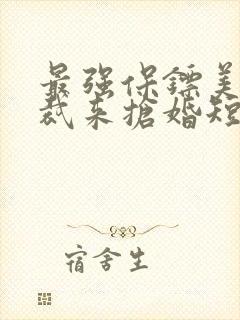 最强保镖美
裁来搶婚短
宿舍生